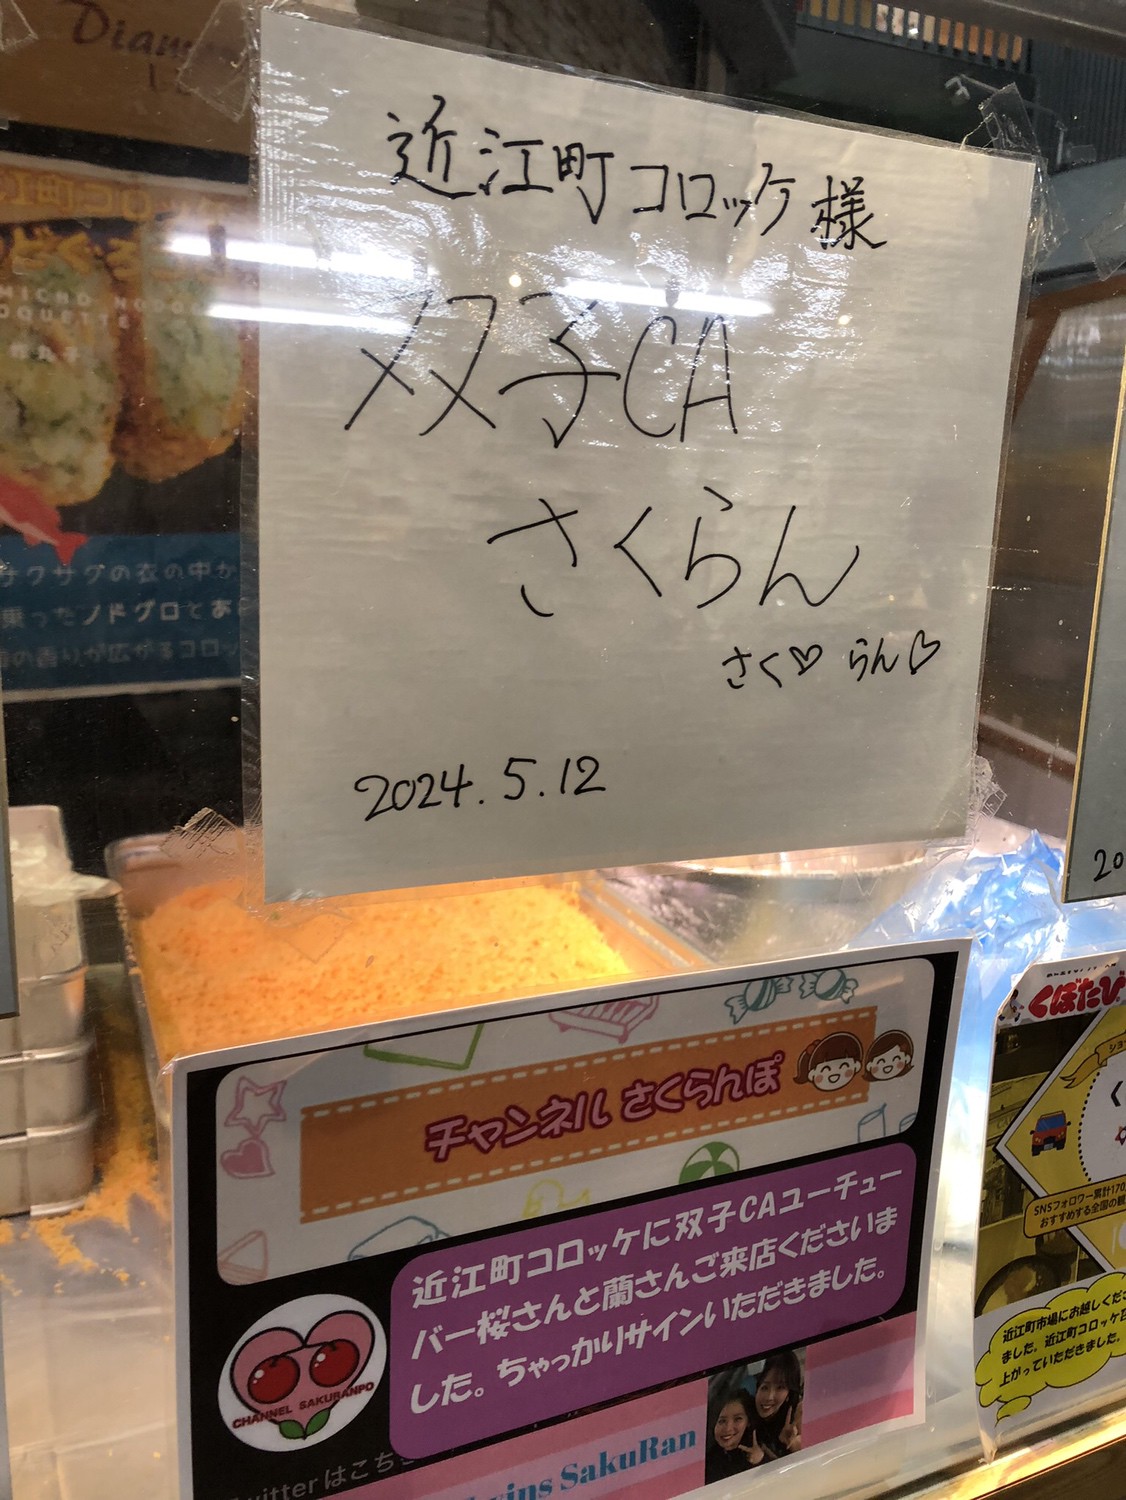 近江町コロッケ様
双子CA
さくらん
さく♡ らん♡
2024.5.12
チャンネル さくらんぽ
近江町コロッケに双子CAユーチュー
バー桜さんと蘭さんご来店くださいま
した。ちゃっかりサインいただきました。
CHANNEL SAKURANPO
witterはこち
wins SakuRan
江町コロッケ
サクサクの衣の中か
乗ったノドグロとあ
の香りが広がるコロッ
くぼたび
SNSフォロワー累計170
おすすめする全国の
近江町市場にお越しくださ
ました。近江町コロッケ
上がっていただきました。
20